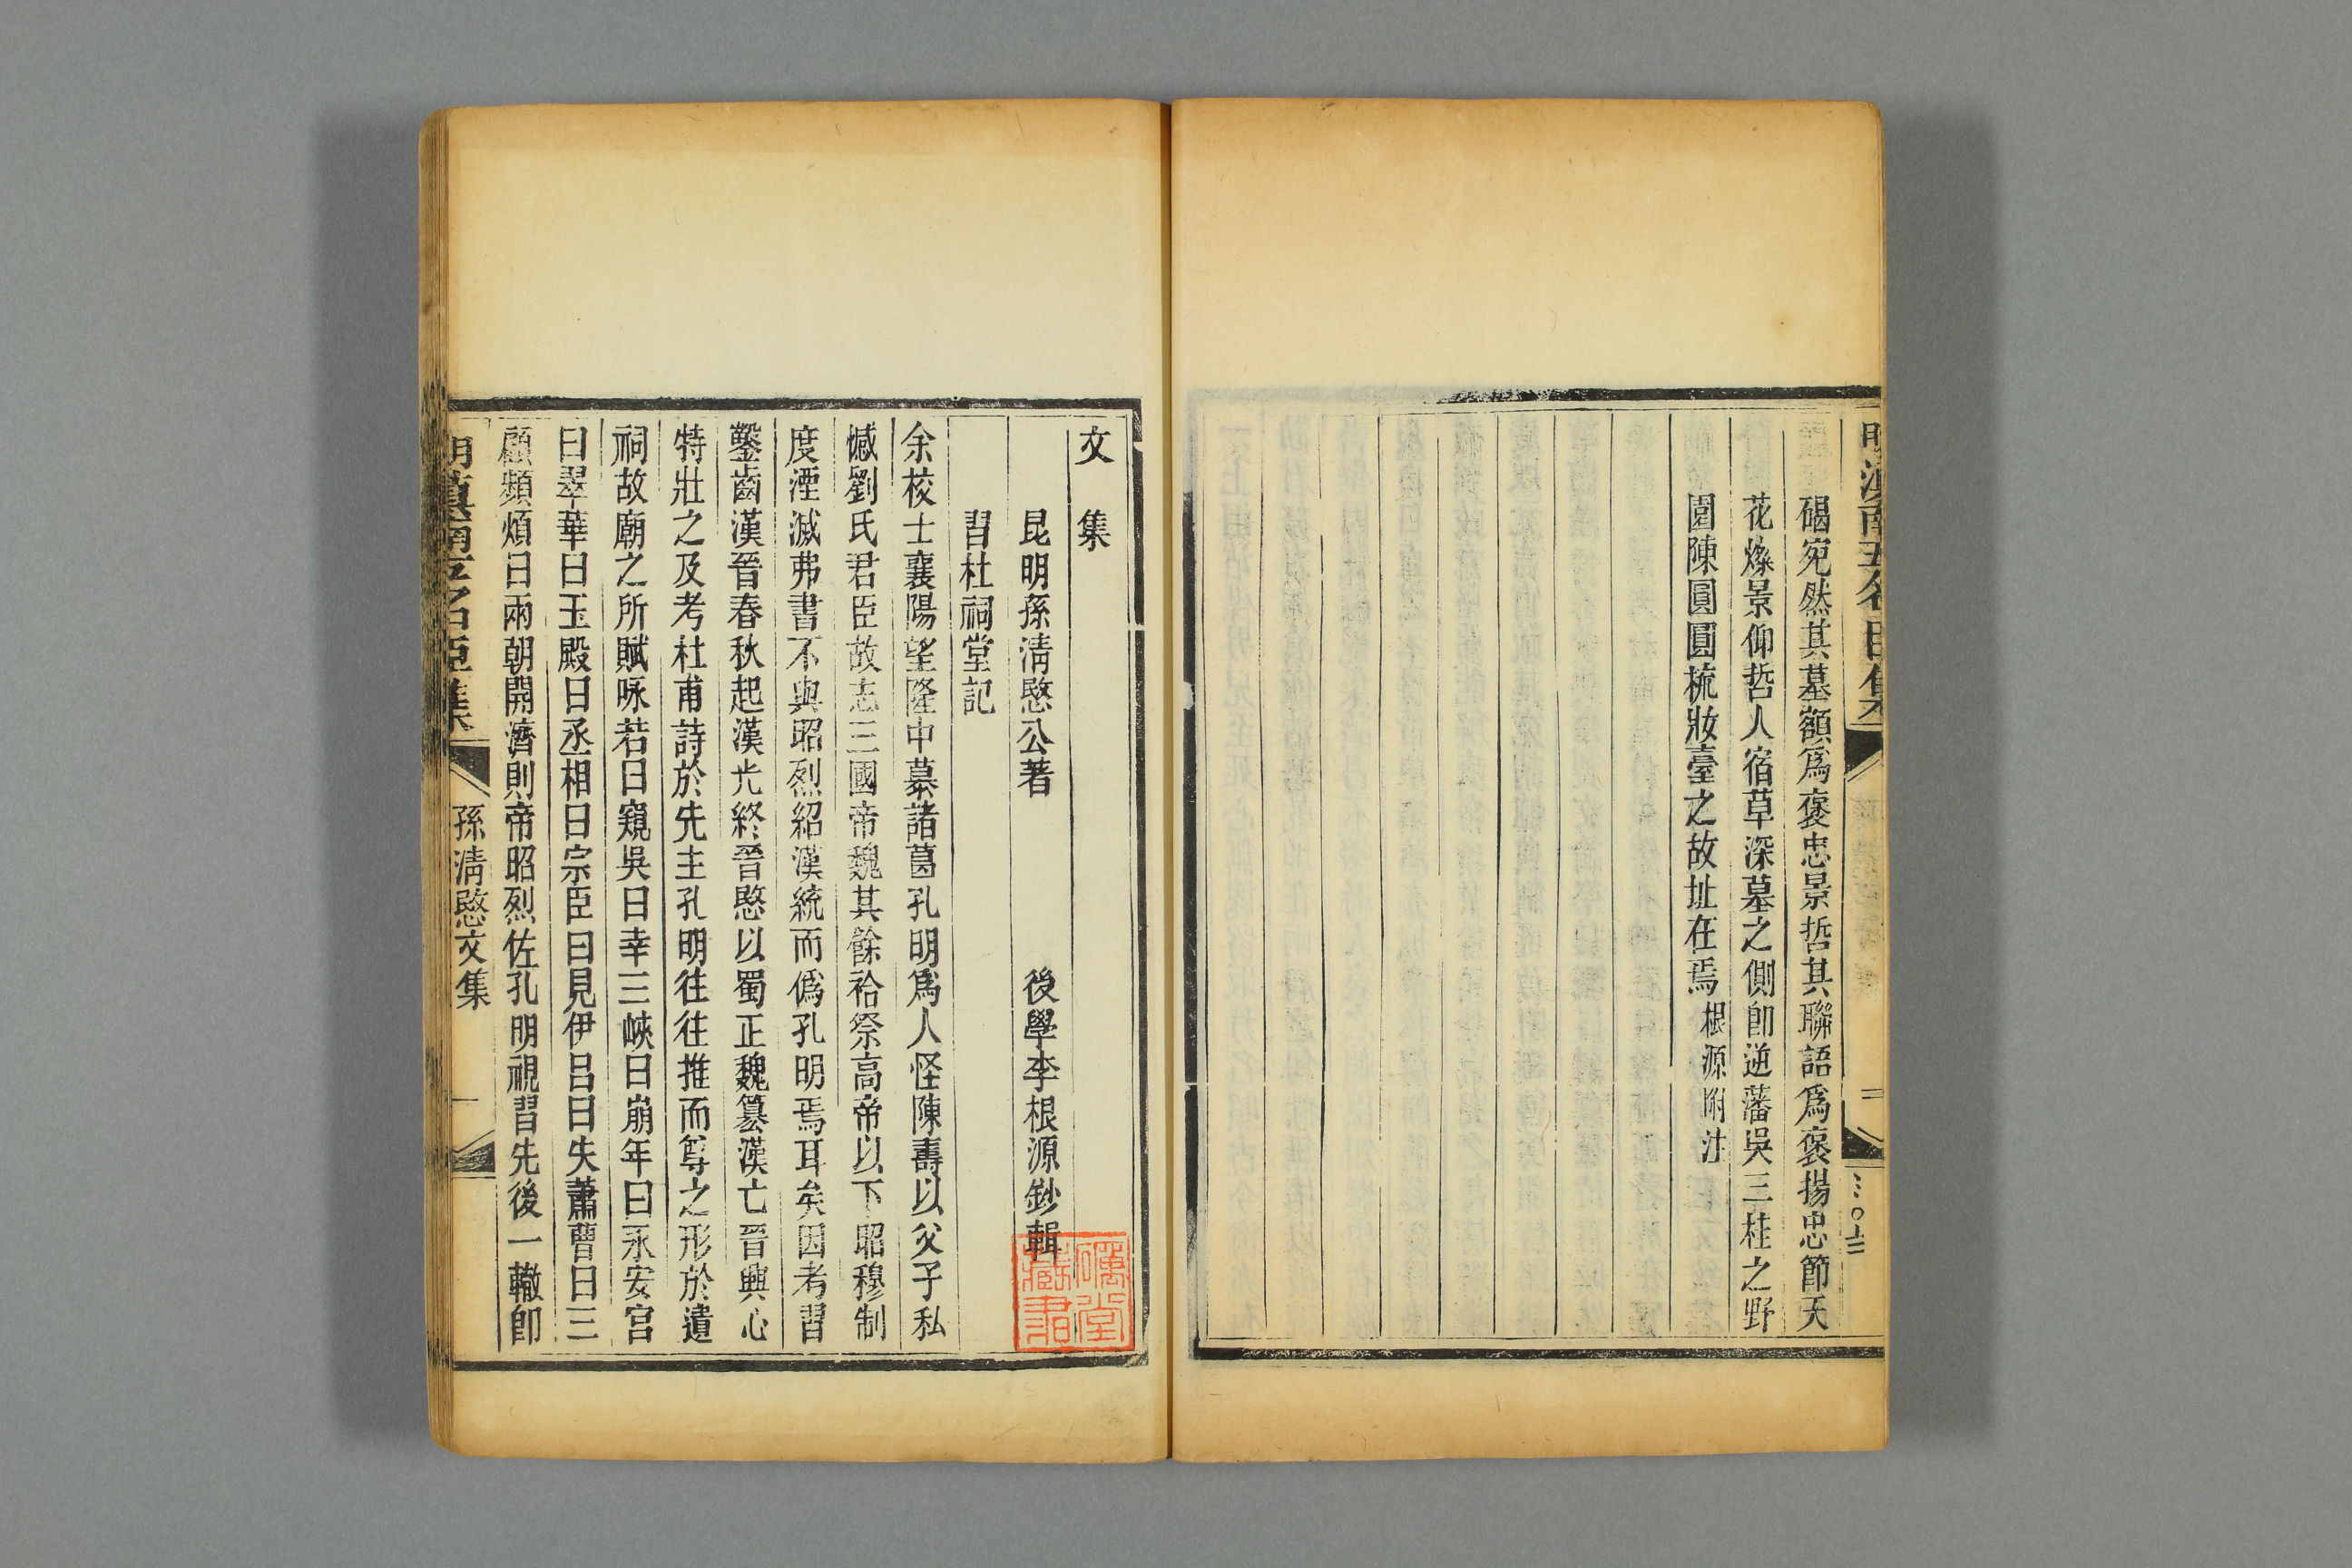 碣宛然其墓額爲褒忠景哲其聯語爲褒揚忠節天
花燦景仰哲人宿草深墓之側卽逆藩吳三桂之野
園陳圓圓梳妝臺之故址在焉根源附注
文集
昆明孫淸愍公著 後學李根源鈔輯
習杜祠堂記
余校士襄陽望隆中慕諸葛孔明爲人怪陳壽以父子私
憾劉氏君臣故志三國帝魏其餘祫祭高帝以下昭穆制
度湮滅弗書不與昭烈紹漢統而僞孔明焉耳矣因考習
鑿齒漢晉春秋起漢光終晉愍以蜀正魏篡漢亡晉興心
特壯之及考杜甫詩於先主孔明往往推而尊之形於遺
祠故廟之所賦咏若曰窺吳曰幸三峽曰崩年曰永安宮
曰翠華曰玉殿曰丞相曰宗臣曰見伊呂曰失蕭曹曰三
顧頻煩曰兩朝開濟則帝昭烈佐孔明視習先後一轍卽
明滇南五名臣集 孫淸愍文集 一